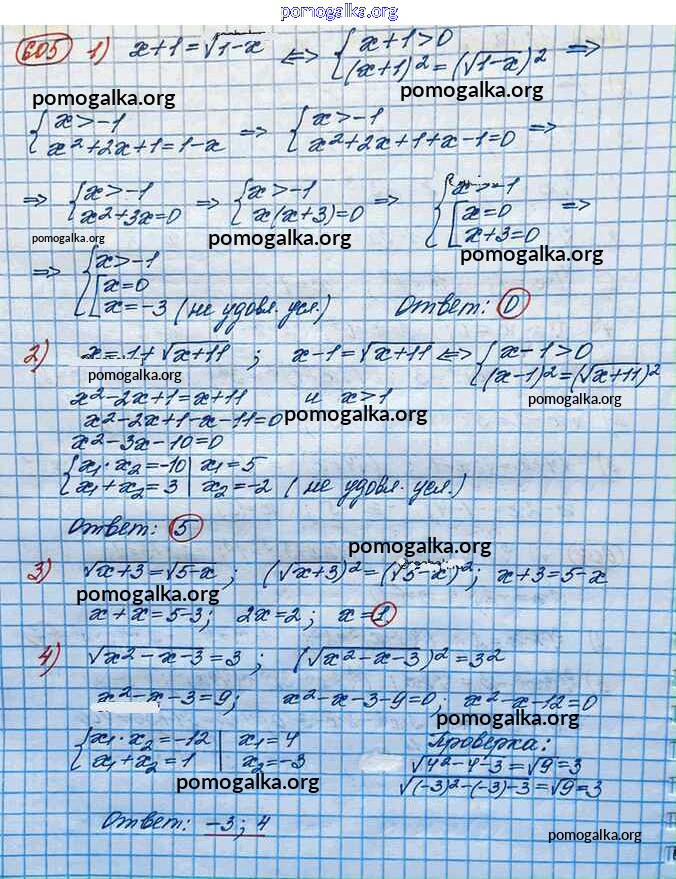 pomogalka.org
605 1) x+1=√1-x ⇔ { x+1>0
(x+1)²=(√1-x)² ⇒
pomogalka.org pomogalka.org
{ x>-1
x²+2x+1=1-x ⇒ { x>-1
x²+2x+1+x-1=0 ⇒
⇒ { x>-1
x²+3x=0 ⇒ { x>-1
x(x+3)=0 ⇒ { x>-1
[ x=0
x+3=0 ⇒
pomogalka.org pomogalka.org pomogalka.org
⇒ { x>-1
[ x=0
x=-3 (не удовл. усл.) Ответ: 0
2) x=1+√x+11 ; x-1=√x+11 ⇔ { x-1>0
(x-1)²=(√x+11)²
pomogalka.org pomogalka.org
x²-2x+1=x+11 и x>1
pomogalka.org
x²-2x+1-x-11=0
x²-3x-10=0
{ x₁·x₂=-10 | x₁=5
x₁+x₂=3 | x₂=-2 (не удовл. усл.)
Ответ: 5
pomogalka.org
3) √x+3=√5-x ; (√x+3)²=(√5-x)²; x+3=5-x
pomogalka.org
x+x=5-3; 2x=2; x=1
4) √x²-x-3=3 ; (√x²-x-3)²=3²
x²-x-3=9; x²-x-3-9=0; x²-x-12=0
pomogalka.org
{ x₁·x₂=-12 | x₁=4
x₁+x₂=1 | x₂=-3
Проверка:
√4²-4-3=√9=3
√(-3)²-(-3)-3=√9=3
pomogalka.org
Ответ: -3; 4
pomogalka.org